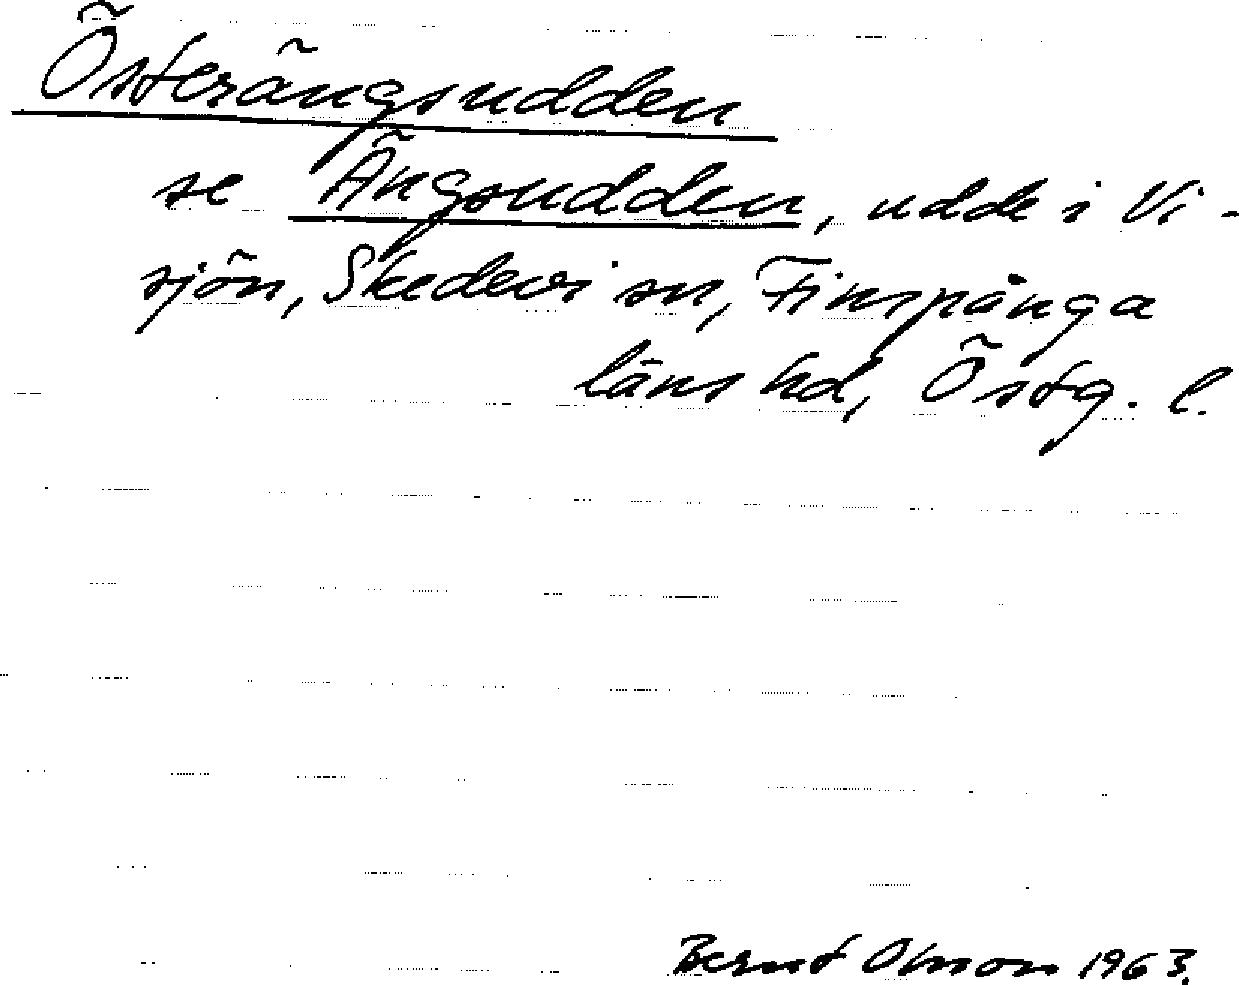 Österängsudden
se Ängsudden, udde i Vi-
sjön, Skedevi sn, Finspånga
läns hd, Östg. l.
Bernt Olsson 1963.